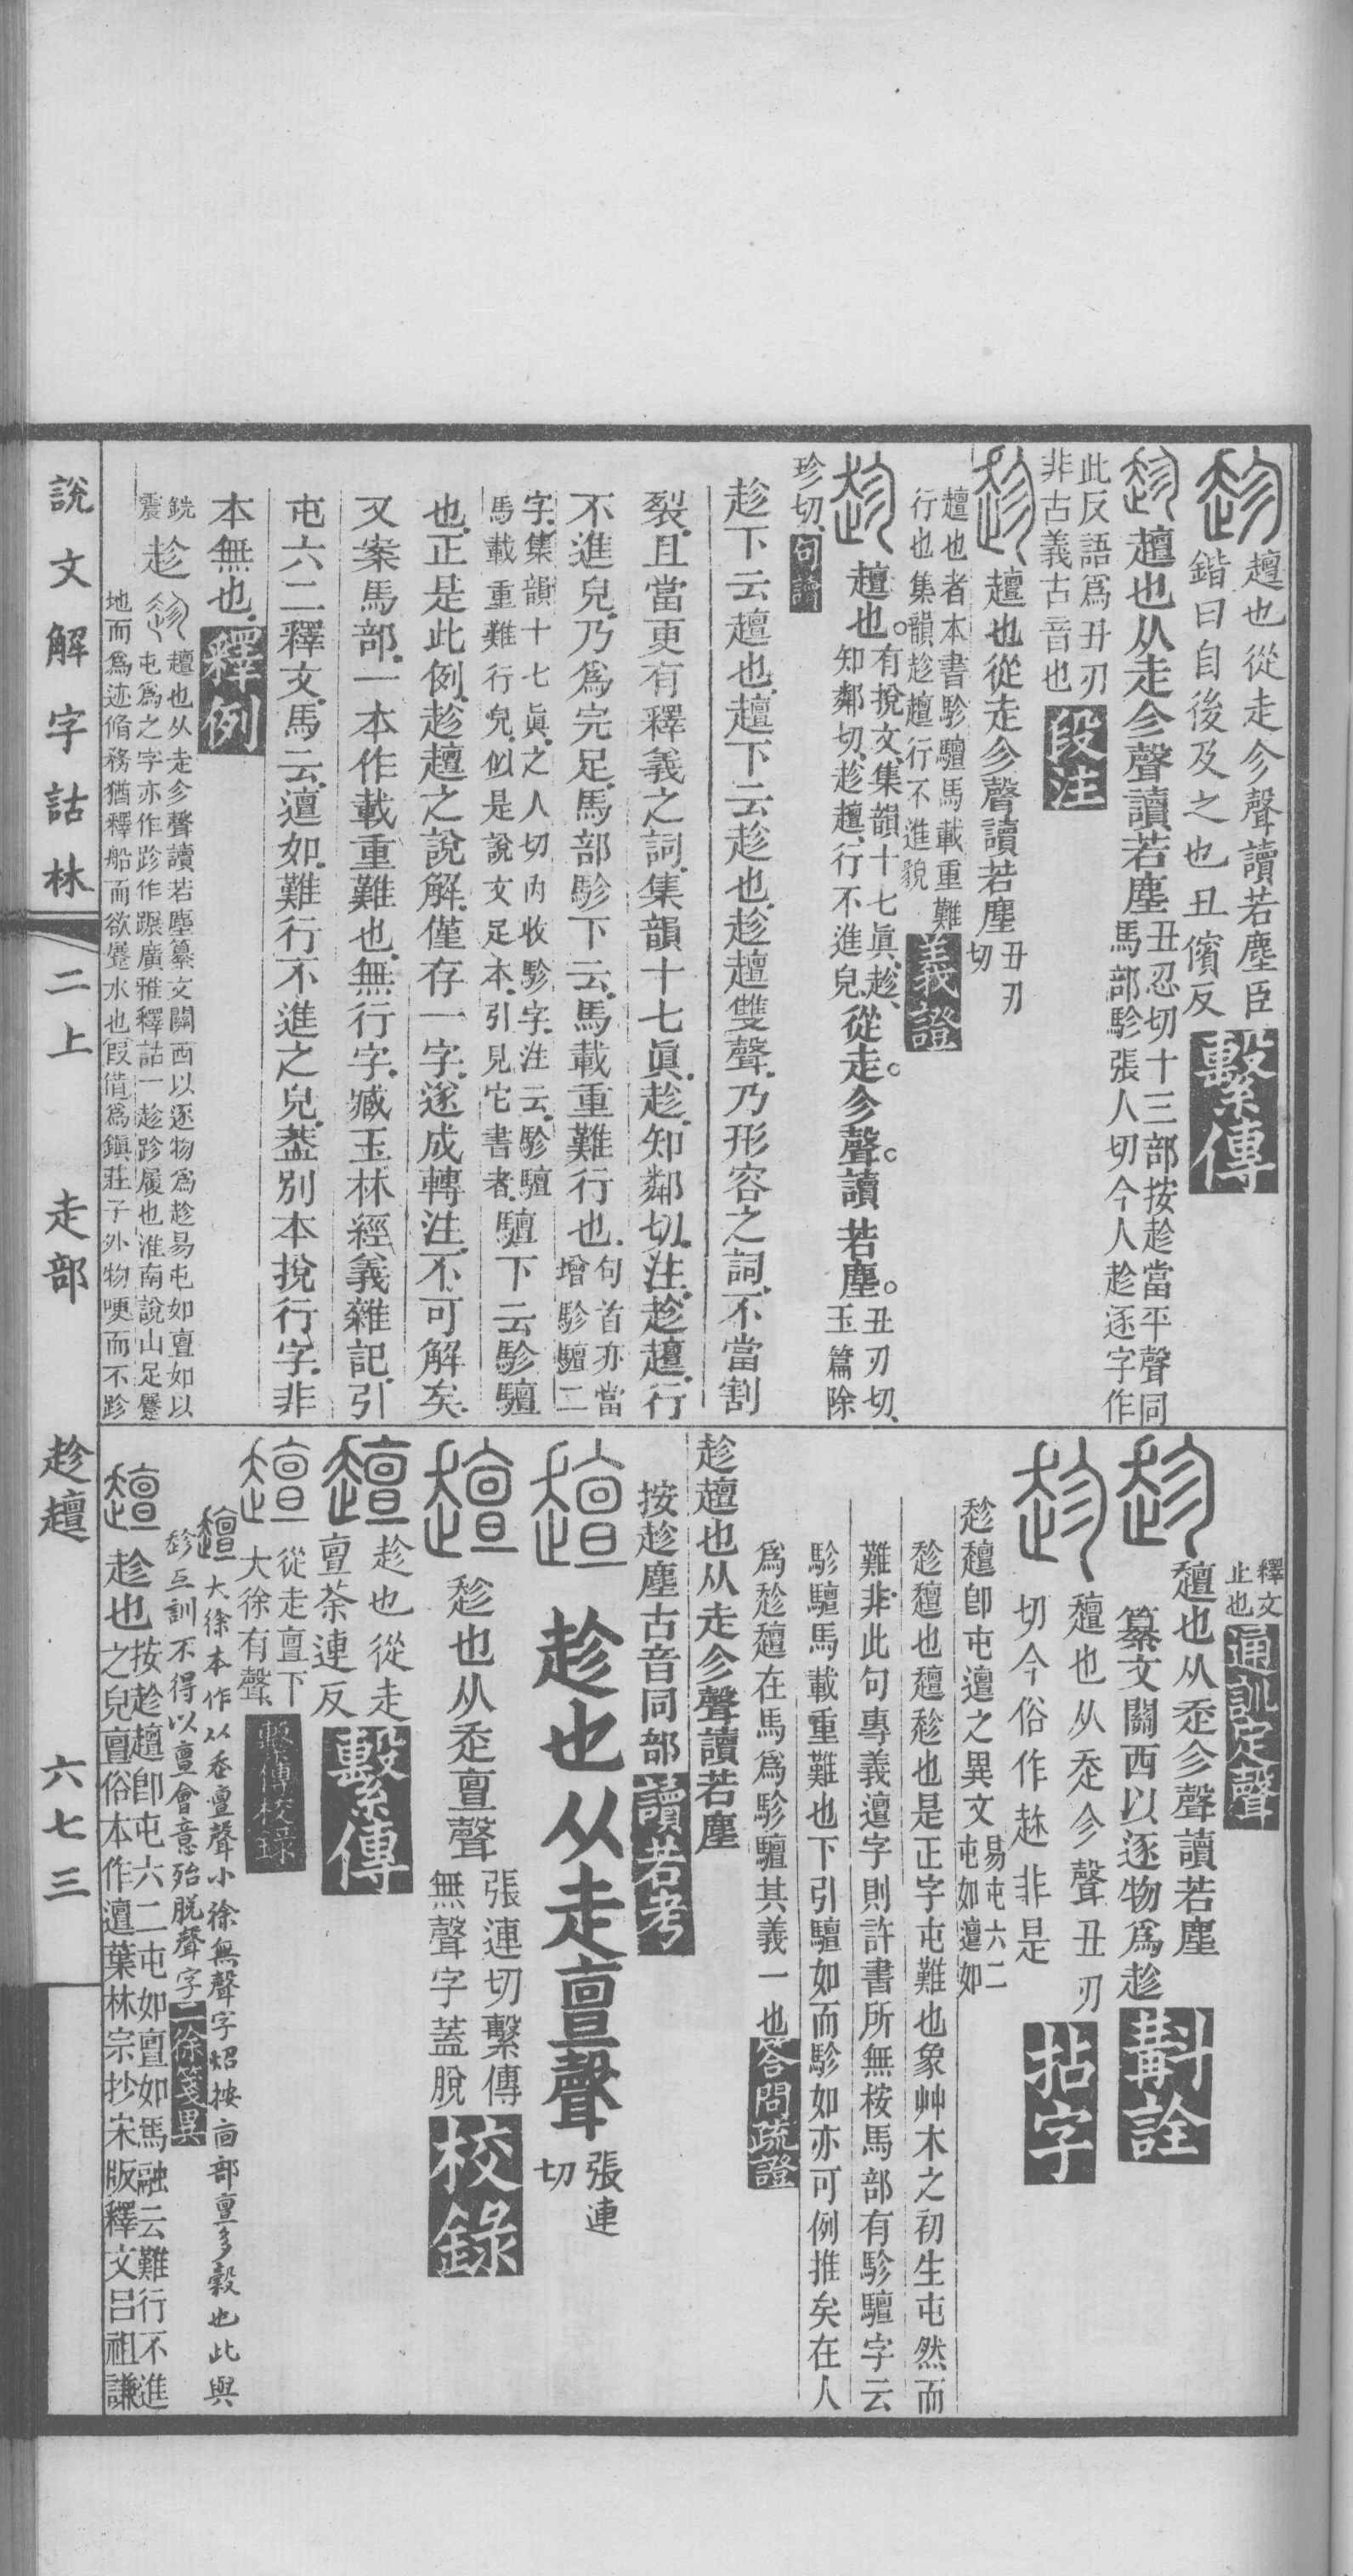 趁 䞡也從走㐱聲讀若塵臣
鍇曰自後及之也丑儐反 繫傳
趁 䞡也从走㐱聲讀若塵 丑忍切十三部按趁當平聲同
馬部駗張人切今人趁逐字作
此反語爲丑刃
非古義古音也 段注
趁 䞡也從走㐱聲讀若塵 丑刃
切
䞡也者本書駗驙馬載重難
行也集韻趁䞡行不進貌 義證
趁 䞡也。有挩文、集韻十七眞、趁、
知鄰切、趁䞡、行不進皃、從走。㐱聲。讀若塵。丑刃切、
玉篇除
珍切、句讀
趁下云䞡也、䞡下云趁也、趁䞡雙聲、乃形容之詞、不當割
裂、且當更有釋義之詞、集韻十七眞、趁、知鄰切、注、趁䞡、行
不進皃、乃爲完足、馬部駗下云、馬載重難行也、句首亦當
增駗驙二
字、集韻十七眞、之人切內收駗字、注云、駗驙
馬載重難行皃、似是說文足本、引見它書者、驙下云駗驙
也、正是此例、趁䞡之說解、僅存一字、遂成轉注、不可解矣、
又案馬部、一本作載重難也、無行字、臧玉林經義雜記、引
屯六二釋文、馬云、邅如、難行不進之皃、葢別本挩行字、非
本無也、釋例
銑
震 趁 䞡也从走㐱聲讀若塵纂文關西以逐物爲趁易屯如亶如以
屯爲之字亦作跈作蹍廣雅釋詁一趁跈履也淮南說山足蹷
地而爲迹脩務猶釋船而欲蹷水也叚借爲鎭莊子外物哽而不跈
釋文
止也 通訓定聲
趁 䞡也从走㐱聲讀若塵
纂文關西以逐物爲趁 斠詮
趁 䞡也从走㐱聲丑刃
切今俗作趂非是 拈字
趁䞡卽屯邅之異文 易屯六二
屯如邅如
趁䞡也䞡趁也是正字屯難也象艸木之初生屯然而
難非此句專義邅字則許書所無桉馬部有駗驙字云
駗驙馬載重難也下引驙如而駗如亦可例推矣在人
爲趁䞡在馬爲駗驙其義一也 答問疏證
趁䞡也从走㐱聲讀若塵
按趁塵古音同部 讀若考
䞡 趁也从走亶聲 張連
切
䞡 趁也从走亶聲 張連切繫傳
無聲字蓋脫 校錄
䞡 趁也從走
亶荼連反 繫傳
䞡 從走亶下
大徐有聲、 繫傳校錄
䞡 大徐本作从走亶聲小徐無聲字炤按㐭部亶多穀也此與
趁互訓不得以亶會意殆脱聲字 二徐箋異
䞡 趁也 按趁䞡卽屯六二屯如亶如馬融云難行不進
之皃亶俗本作邅葉林宗抄宋版釋文呂祖謙
說文解字詁林 二上 走部 趁䞡 六七三